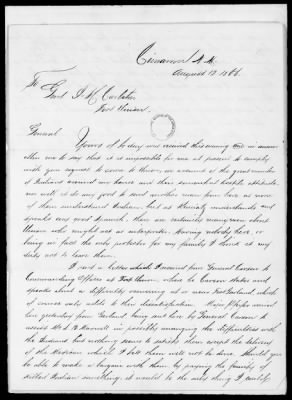 Cimarron N.M.
August 12 1866.
To Genl. J. H. Carleton
Fort Union.
General
Yours of to day was received this evening and in answer
allow me to say that it is impossible for me at present to comply
with your request to come to Union, on account of the great number
of Indians around my house and their somewhat hostile attitude,
nor will it do any good to send another man from here as none
of them understand Indian, but as Kaniatze understands and
speaks very good Spanish, there are certainly many men about
Union who might act as interpreter. Having nobody here, or
being in fact the only protection for my family I deem it my
duty not to leave them.
I sent a letter which I received from General Carson to
Commanding Officer at Fort Union, where he Carson states and
speaks about a difficulty occurring at or near Fort Garland which
of course only adds to their dissatisfaction. Major
yesterday from Garland being sent here by General Carson to
assist Mr. L. B. Maxwell in possibly arranging the difficulties with
the Indians but nothing seems to satisfy them except the delivery
of the Mexican which I told them will not be done. Should you
be able to make a bargain with them by paying the family of
killed Indian something, it would be the only thing I could